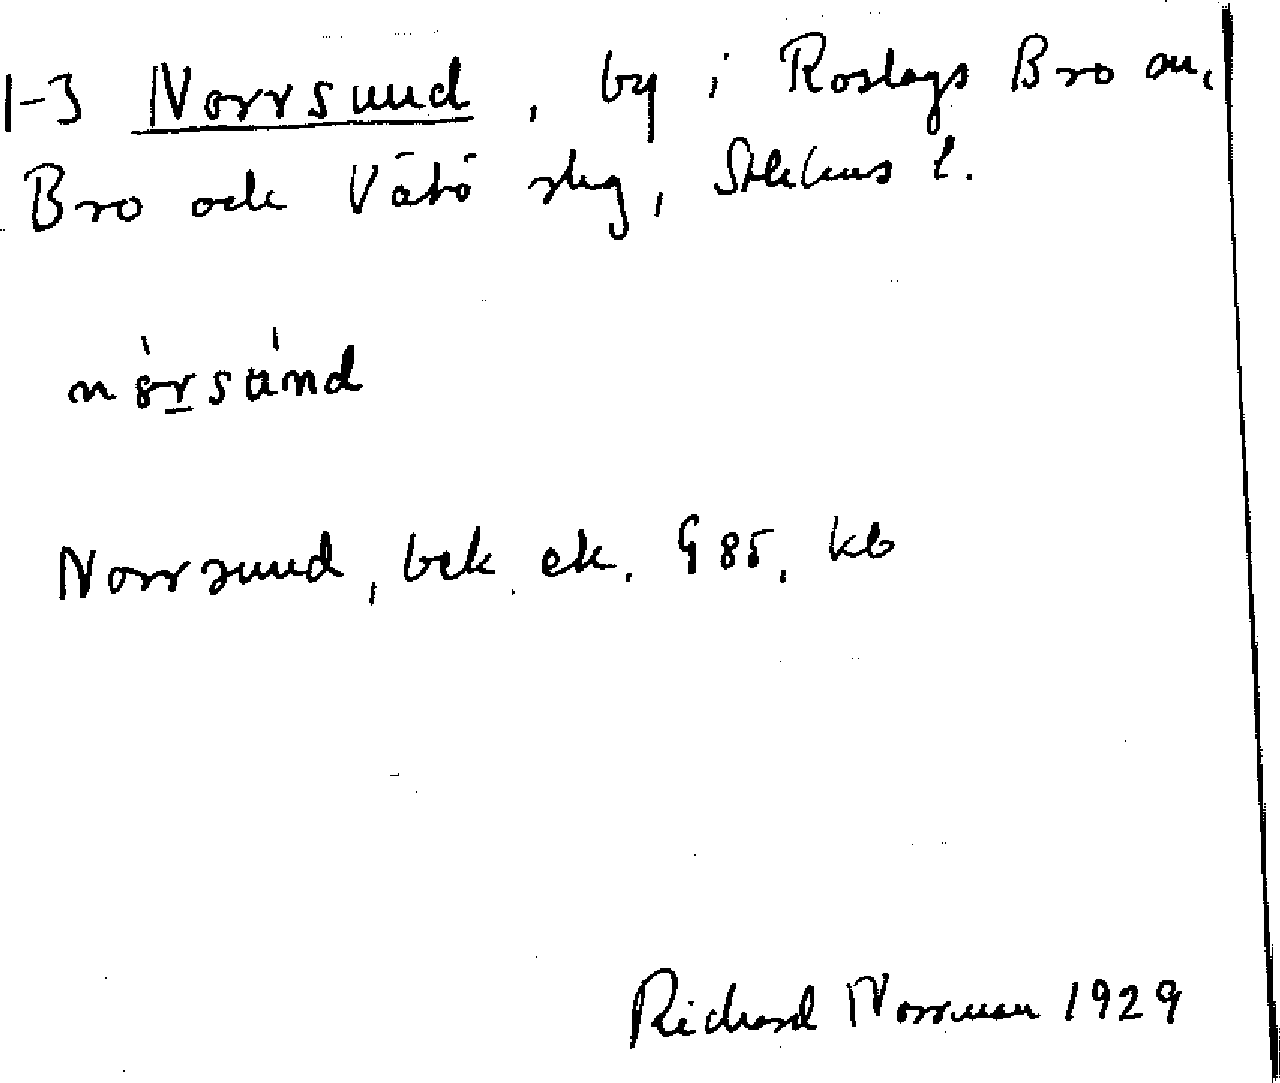 1-3 Norrsund, by i Roslags Bro sn,
Bro och Vätö skg, Sthlms l.
nòrsúnd
Norrsund, bek. ek. G 85, kb
Richard Norrman 1929